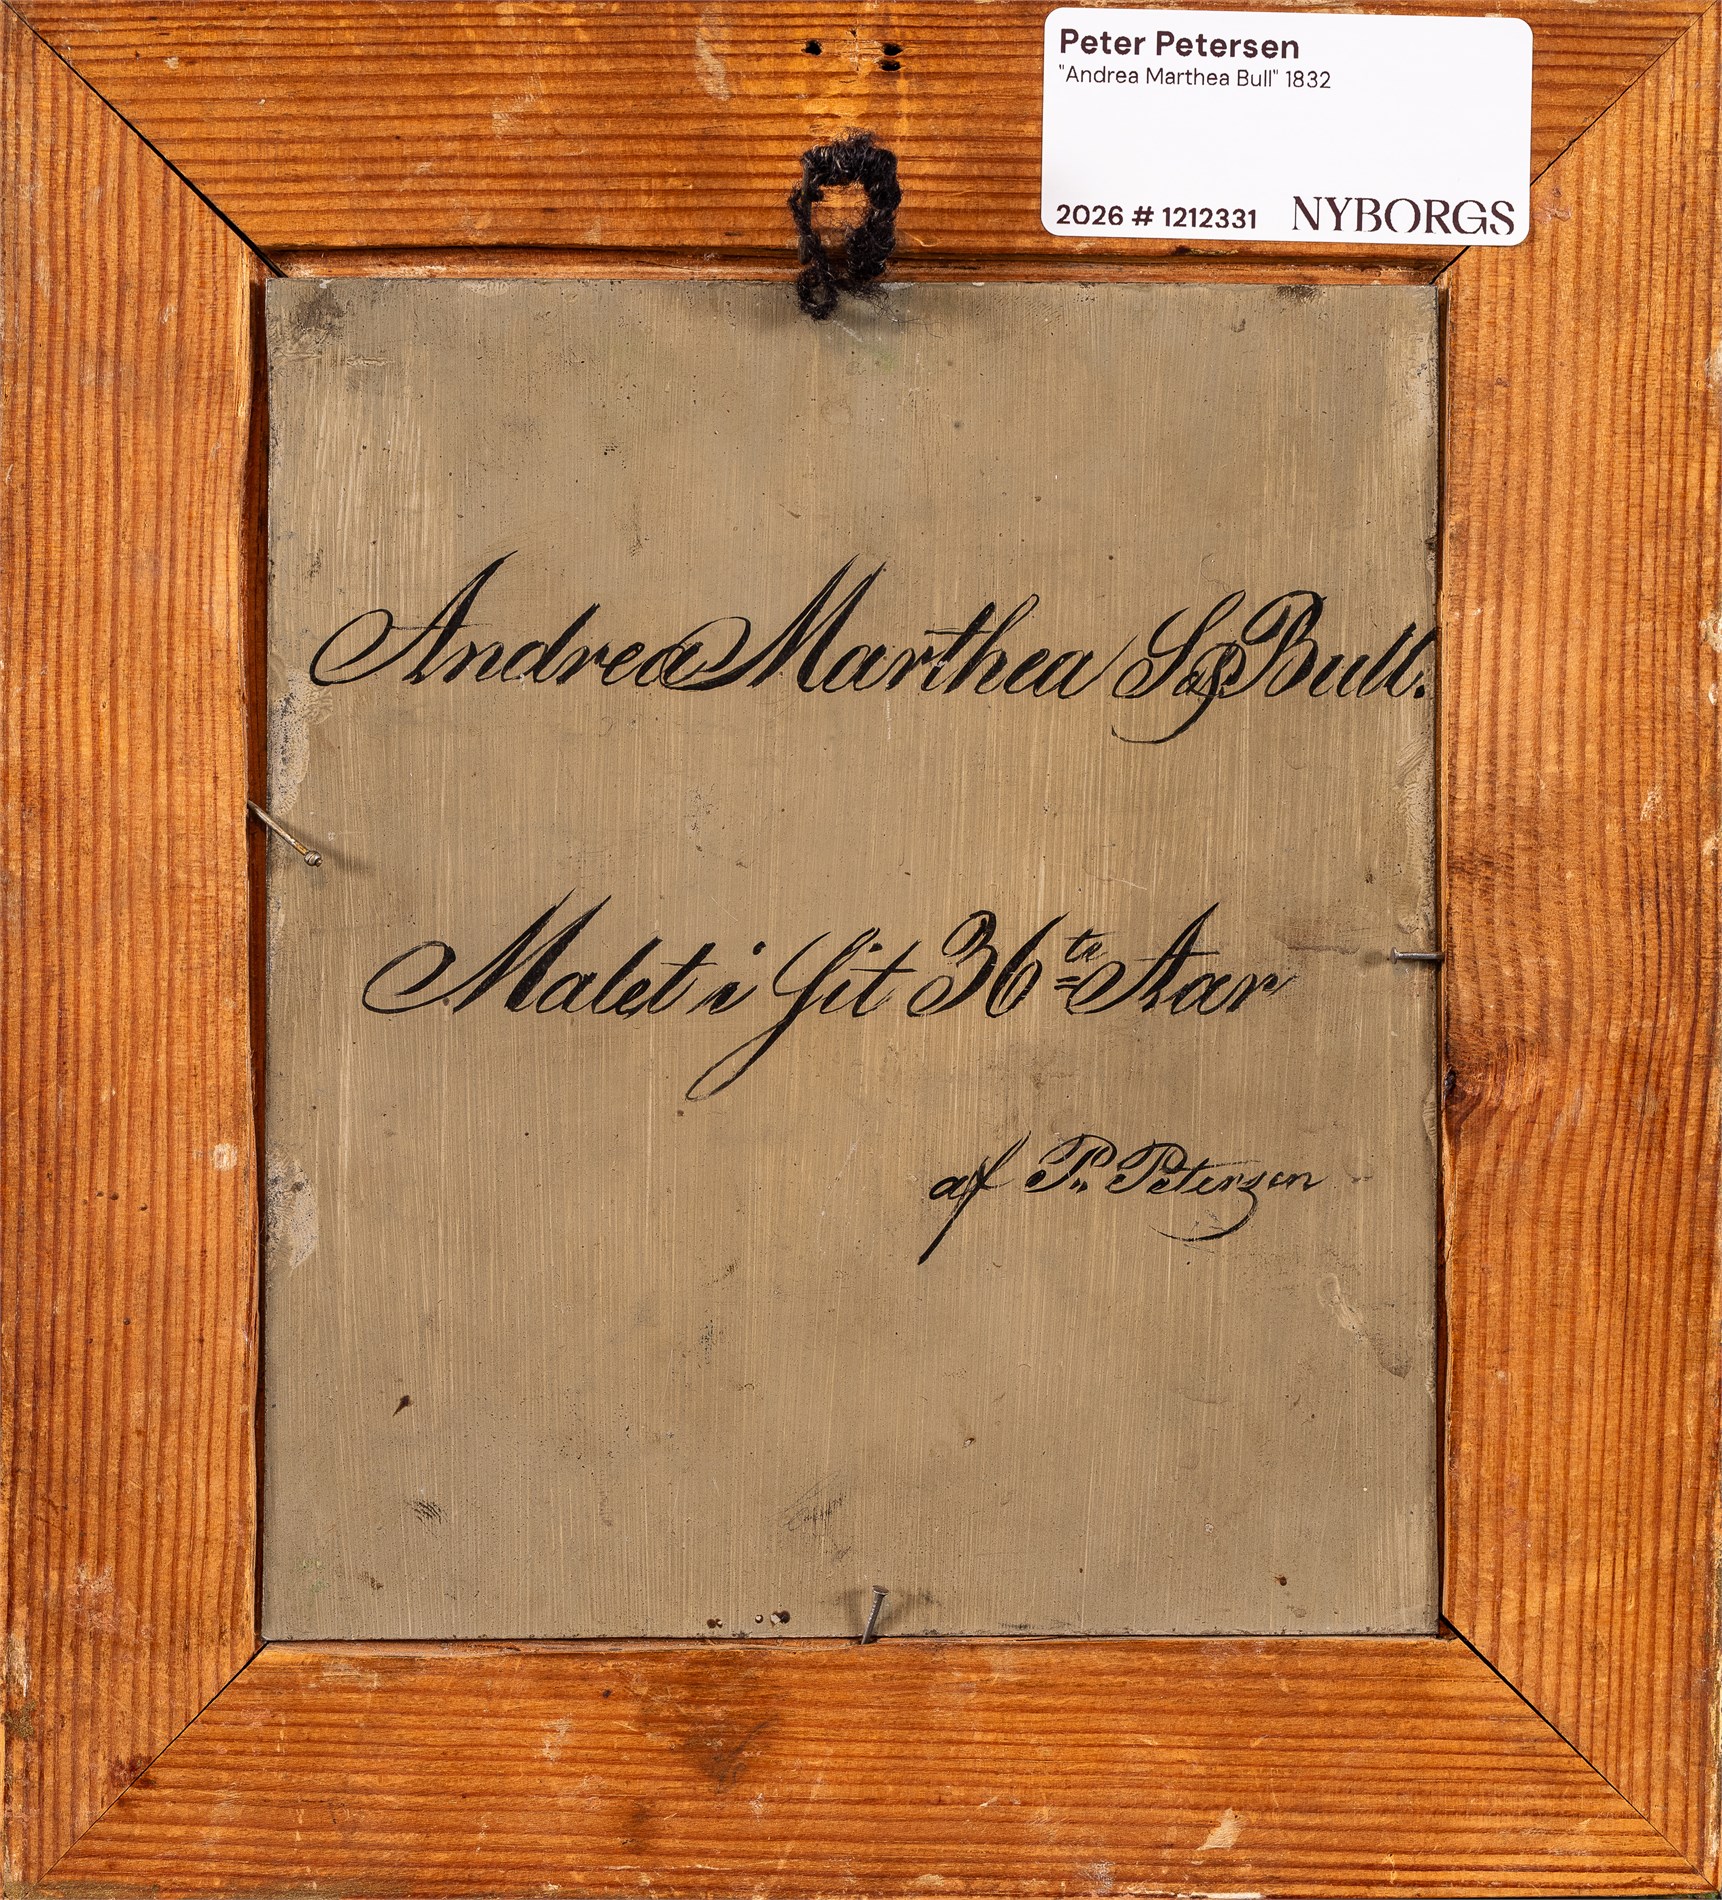 Peter Petersen
"Andrea Marthea Bull" 1832
2026 # 1212331 NYBORGS
Andrea Marthea Bull.
Malet i sit 36te Aar
af P. Petersen